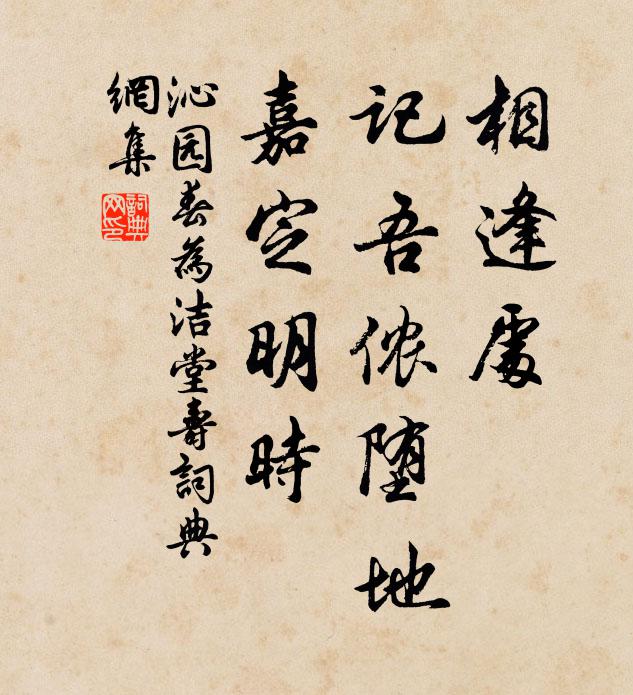 相逢處
记吾侬堕地
嘉定明時
沁园春為洁堂壽詞典
網集
詞典
网印